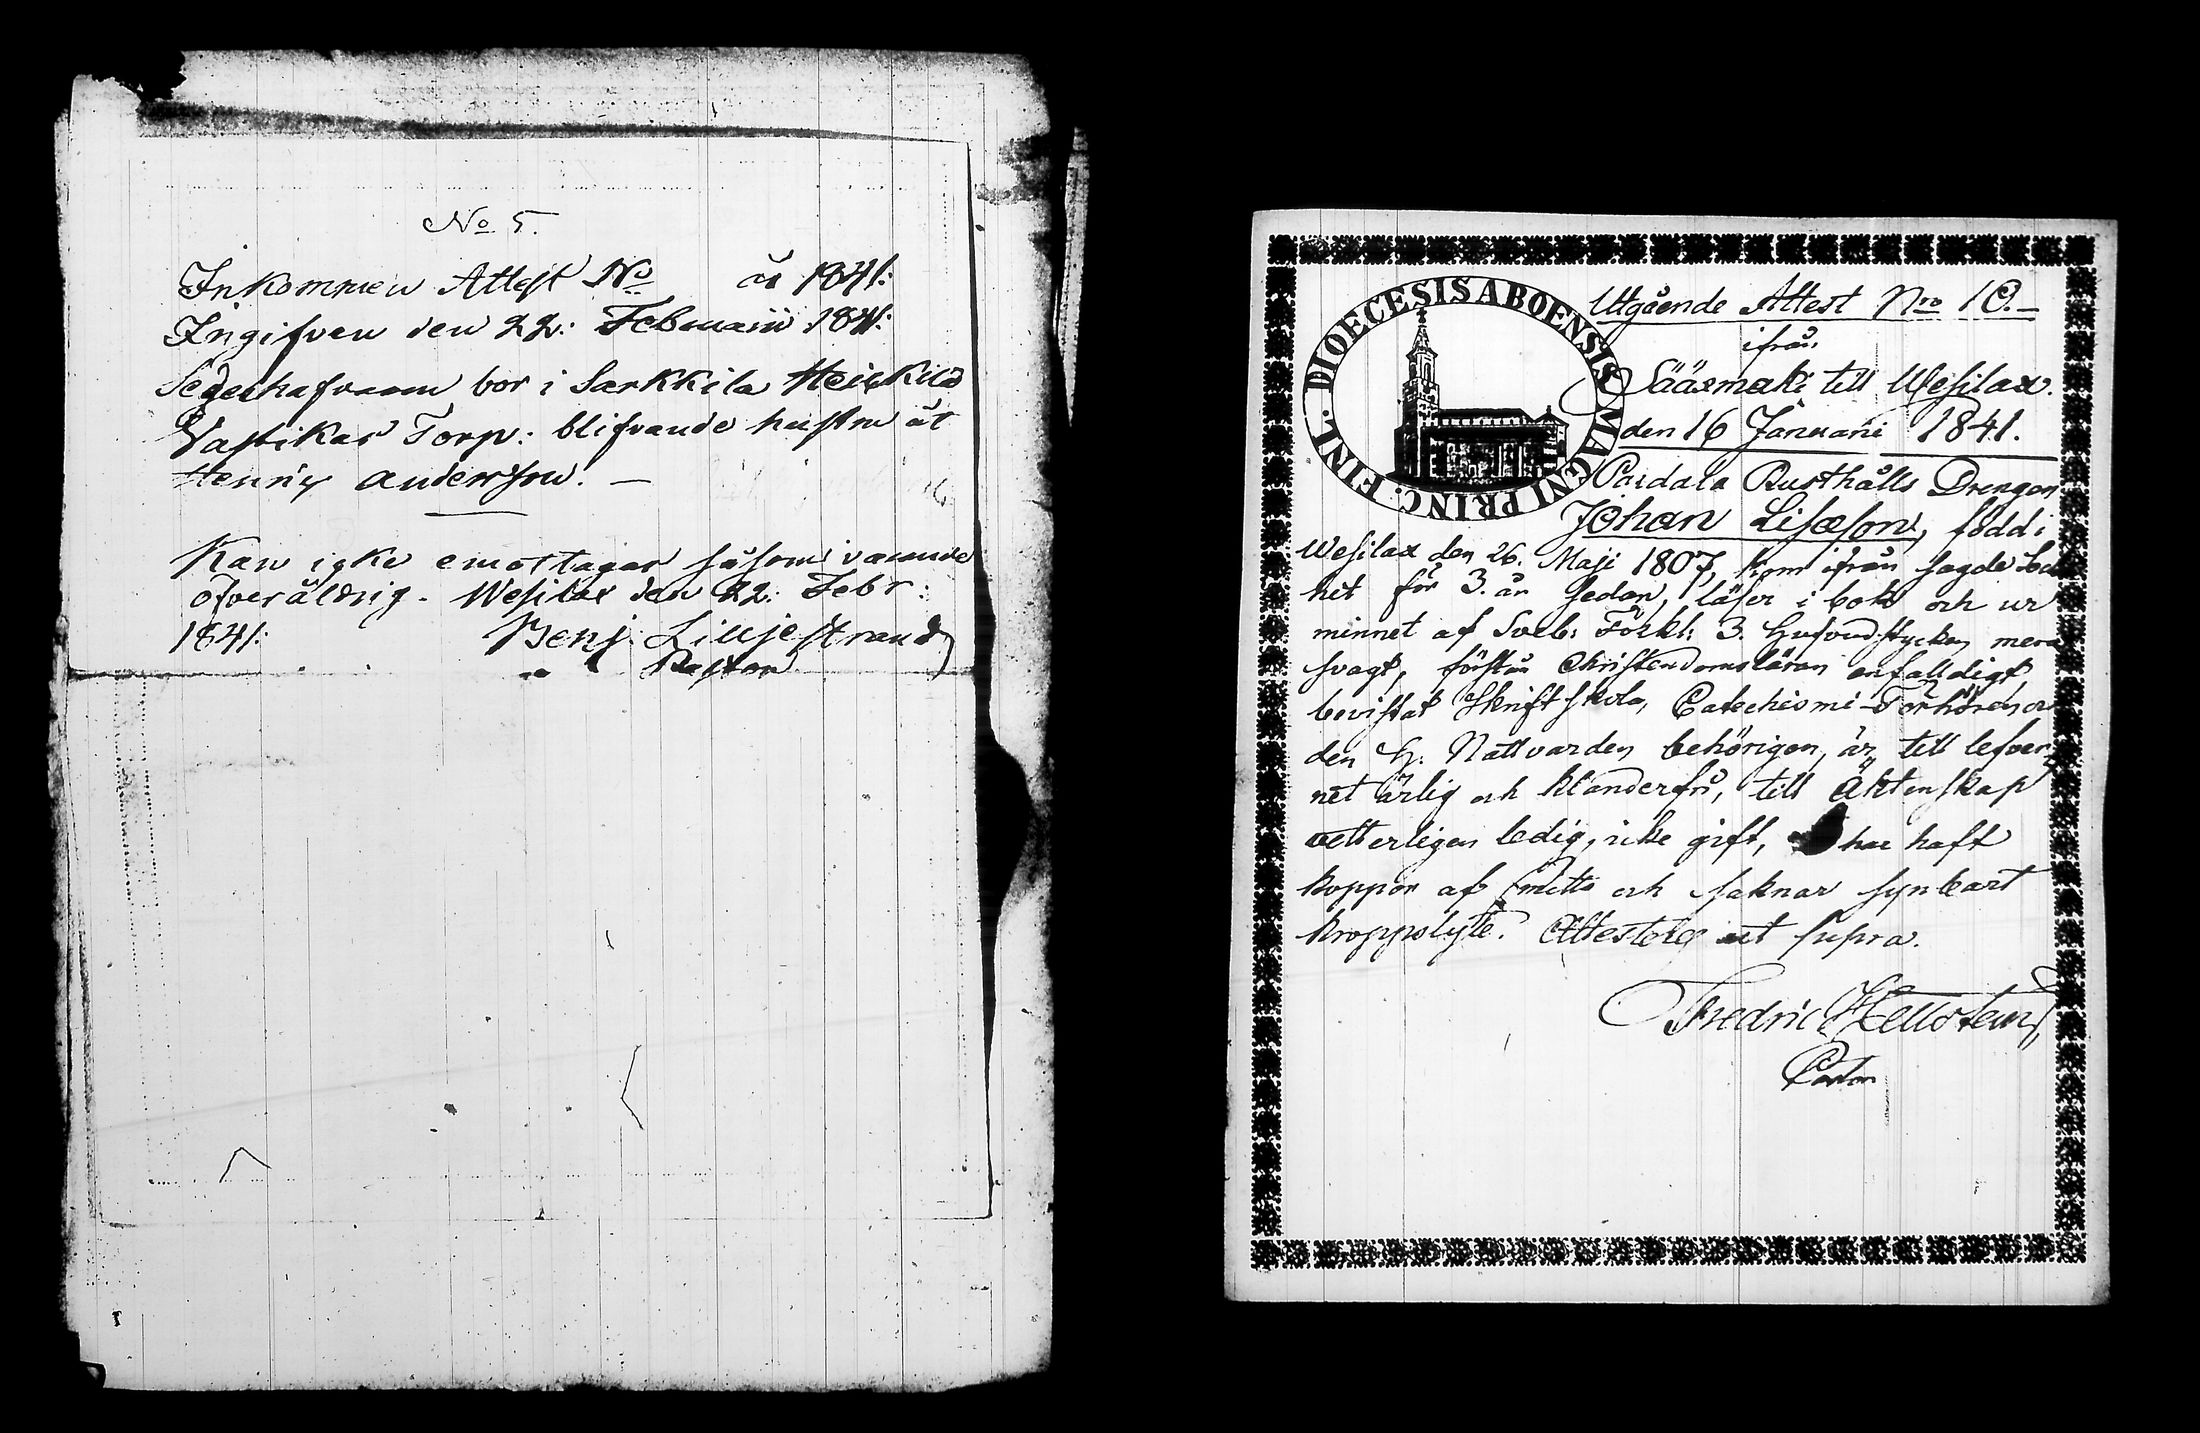 No 5.
Inkommen Attest No år 1841:
Ingifven den 22: Februarii 1841:
Sedeshafvaren bor i Sarkkila Heikkilä
Vastikas Torp: blifvande hustru åt
Henrix Andersson. —
Kan icke emottagas såsom varande
öfveråldrig. Wesilax den 22. Febr:
1841: Benj. Lilljestrand
Pastor
FINL. DIOECESIS ABOENSIS MAGNI PRINC.
Utgående Attest Nro 10. —
ifrån
Sääxmäki till Wesilax.
den 16 Januari 1841.
Paidala Rusthålls Drengen
Johan Lisason, född i
Wesilax den 26. Maji 1807, kom ifrån sagde Sock
net för 3. år sedan, läser i bok och ur
minnet af Sveb: Förkl: 3. Hufvudstycken mera
svagt, förstår Christendomsläran enfalldigt,
bevistat Skriftskola, Catechismi-Förhören och
den H. Nattvarden behörigen, är till lefver
net ärlig och klanderfri, till Äktenskap
vetterligen ledig, icke gift, har haft
koppor af smitta och saknar synbart
kroppslyte. Attesterer ut supra.
Fredric Hellsten,
Pastor